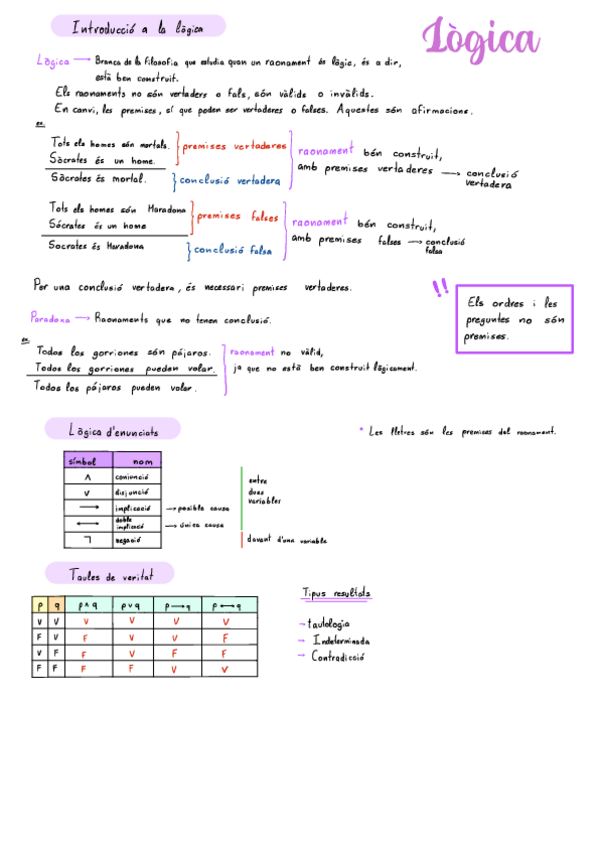 Introducció a la lògica
Lògica
Lògica → Branca de la filosofia que estudia quan un raonament és lògic, és a dir,
està ben construit.
Els raonaments no són vertaders o fals, són vàlids o invàlids.
En canvi, les premises, sí que poden ser vertaderes o falses. Aquestes són afirmacions.
ex.
Tots els homes són mortals.
Sòcrates és un home.
premises vertaderes
Sòcrates és mortal.
conclusió vertadera
raonament bén construit,
amb premises vertaderes → conclusió
vertadera
Tots els homes són Maradona
Sócrates és un home
premises falses
Socrates és Maradona
conclusió falsa
raonament bén construit,
amb premises falses → conclusió
falsa
Per una conclusió vertadera, és necessari premises vertaderes.
!!
Els ordres i les
preguntes no són
premises.
Paradoxa → Raonaments que no tenen conclusió.
ex.
Todos los gorriones són pájaros.
Todos los gorriones pueden volar.
Todos los pájaros pueden volar.
raonament no vàlid,
ja que no està ben construit lògicament.
Lògica d'enunciats
* Les lletres són les premises del raonament.
símbol nom
∧ conjunció
∨ disjunció
→ implicació → posible causa
↔ doble implicació → única causa
¬ negació
entre
dues
variables
davant d'una variable
Taules de veritat
p q p∧q p∨q p→q p↔q
V V V V V V
F V F V V F
V F F V F F
F F F F V V
Tipus resultats
→ tautologia
→ Indeterminada
→ Contradicció